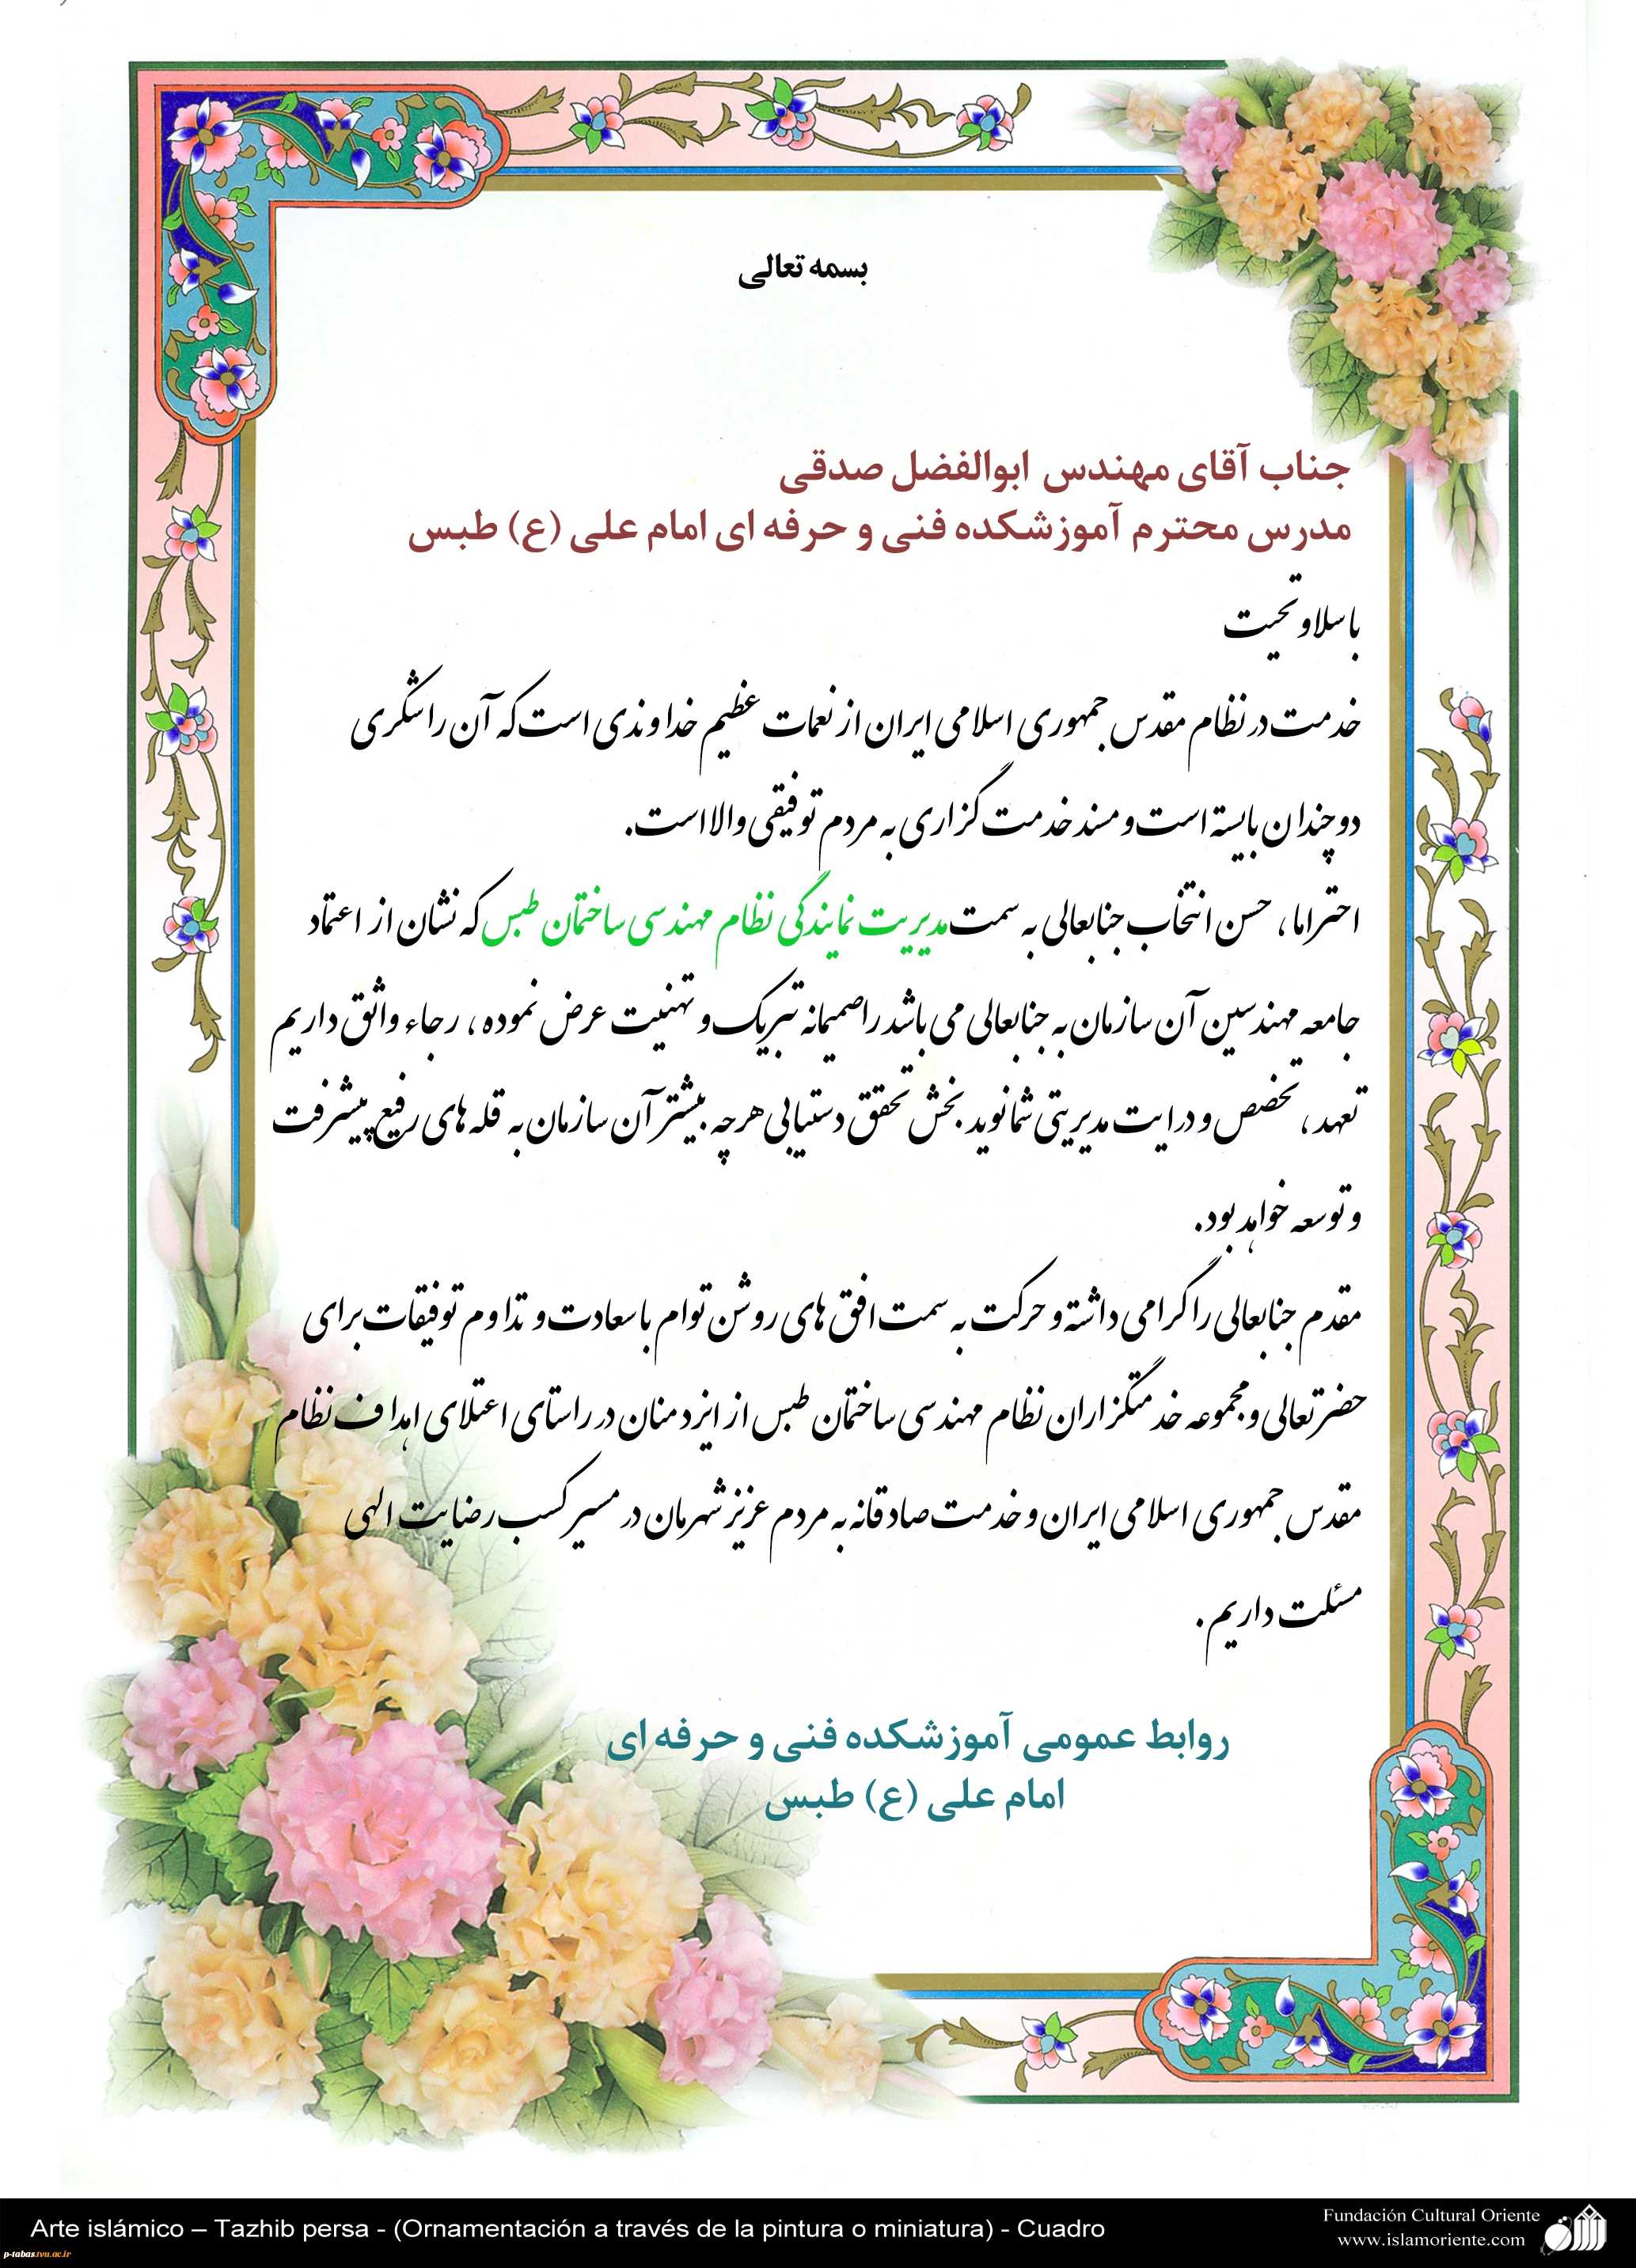 بسمه تعالی
جناب آقای مهندس ابوالفضل صدقی
مدرس محترم آموزشکده فنی و حرفه ای امام علی (ع) طبس
با سلاو تحیت
خدمت در نظام مقدس جمهوری اسلامی ایران از نعمات عظیم خداوندی است که آن را شکری
دوچندان بایسته است و مسند خدمت گزاری به مردم توفیقی والا است.
احتراما، حسن انتخاب جنابعالی به سمت مدیریت نمایندگی نظام مهندسی ساختمان طبس که نشان از اعتماد
جامعه مهندسین آن سازمان به جنابعالی می باشد را صمیمانه تبریک و تهنیت عرض نموده، رجاء واثق داریم
تعهد، تخصص و درایت مدیریتی شما نوید بخش تحقق دستیابی هرچه بیشتر آن سازمان به قله های رفیع پیشرفت
و توسعه خواهد بود.
مقدم جنابعالی را گرامی داشته و حرکت به سمت افق های روشن توام با سعادت و تداوم توفیقات برای
حضرتعالی و مجموعه خدمتگزاران نظام مهندسی ساختمان طبس از ایزد منان در راستای اعتلای اهداف نظام
مقدس جمهوری اسلامی ایران و خدمت صادقانه به مردم عزیز شهرمان در مسیر کسب رضایت الهی
مسئلت داریم.
روابط عمومی آموزشکده فنی و حرفه ای
امام علی (ع) طبس
Arte islámico – Tazhib persa - (Ornamentación a través de la pintura o miniatura) - Cuadro
Fundación Cultural Oriente
www.islamoriente.com
p-tabas.tvu.ac.ir